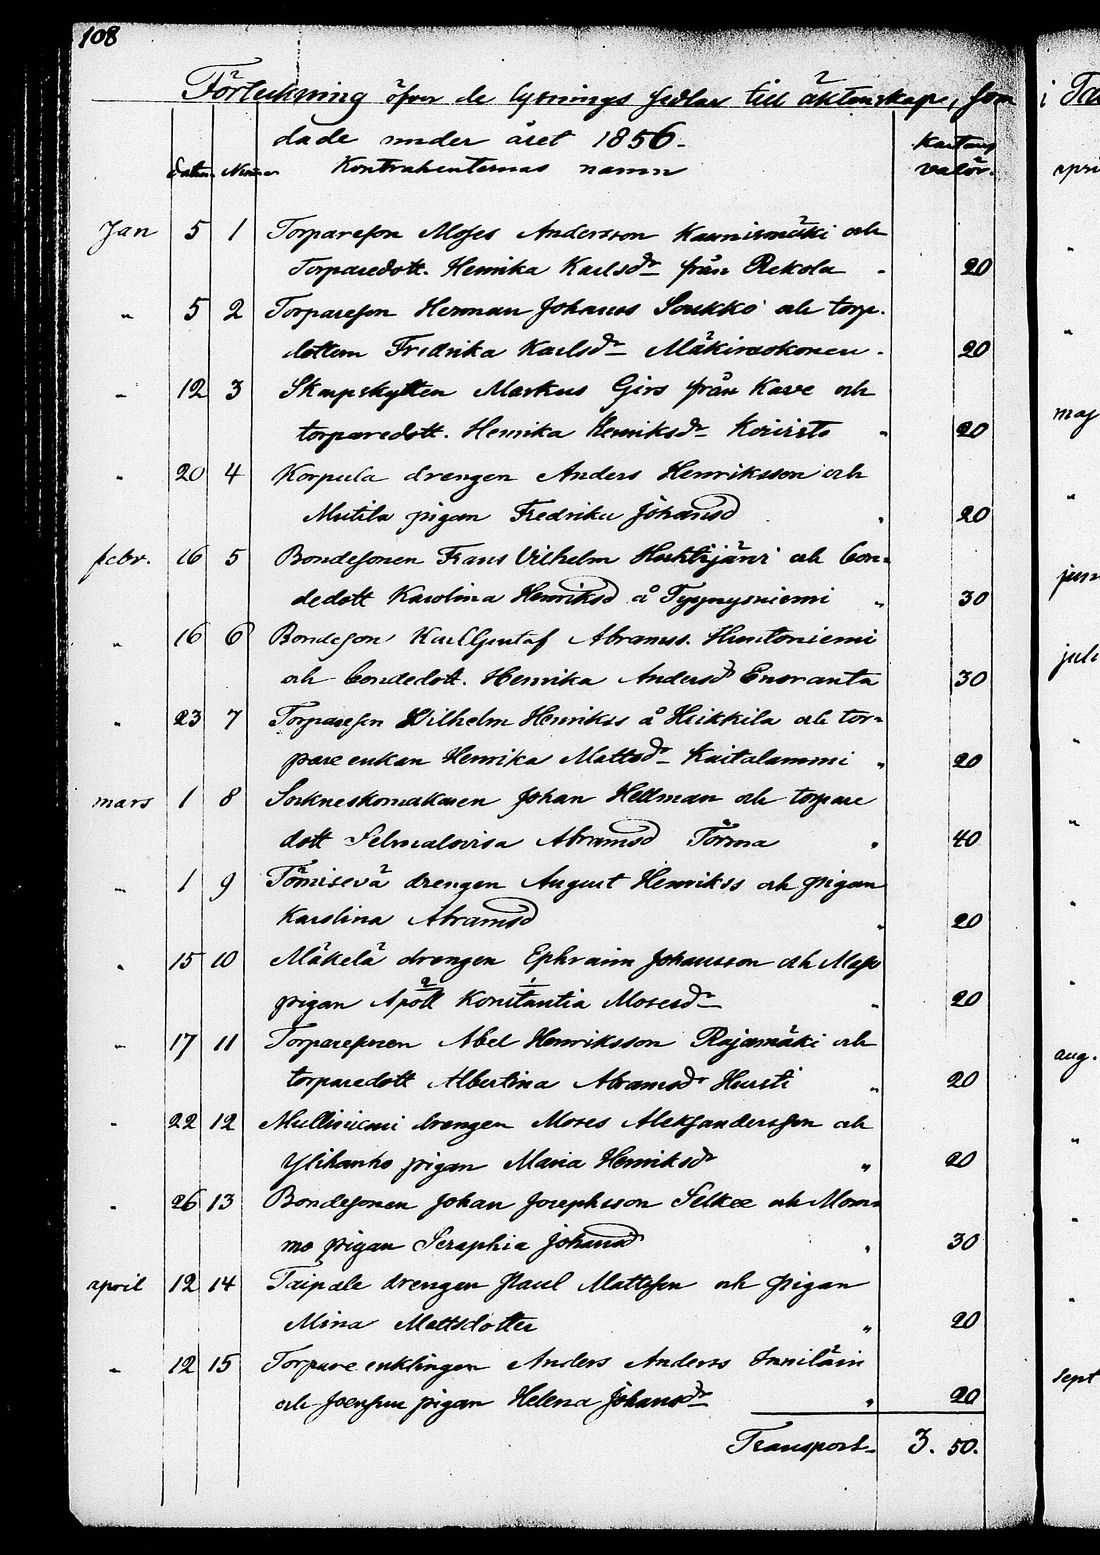 108
Förteckning öfver de lysnings sedlar till äktenskap, som
dade under året 1856.
Kartans
datum Numer Kontrahenternas namn valör.
Jan 5 1 Torpareson Moses Andersson Kaunismäki och
Torparedott. Henrika Karlsdr från Rekola " 20
" 5 2 Torpareson Herman Johanss Soukko och torp.
dottern Fredrika Karlsdr 20
" 12 3 Skarpskytten Markus Girs från Kave och
torparedott. Henrika Henriksdr Koivisto " 20
" 20 4 Korpula drengen Anders Henriksson och
Mutila pigan Fredrika Johansd " 20
febr. 16 5 Bondesonen Frans Vilhelm Huhtijärvi och bon-
dedott Karolina Henriksd å Tyynysniemi " 30
" 16 6 Bondeson Karl Gustaf Abramss. Huutoniemi
och bondedott. Henrika Andersd Ensranta 30
" 23 7 Torpareson Wilhelm Henrikss å Heikkilä och tor-
pare enkan Henrika Mattsdr Kaitalammi " 20
mars 1 8 Sockneskomakaren Johan Hellman och torpare
dott Selmalovisa Abramsd Törmä " 40
" 1 9 Tömisevä drengen August Henrikss och pigan
Karolina Abramsd " 20
" 15 10 Mäkelä drengen Ephraim Johansson och
pigan Apoll Konstantia Mosesdr " 20
" 17 11 Torparesonen Abel Henriksson Rajamäki och
torparedott Albertina Abramsdr Hursti " 20
" 22 12 Mulliniemi drengen Moses Aleksandersson och
Ylihanko pigan Maria Henriksdr " 20
" 26 13 Bondesonen Johan Josephsson Selkee och Mom-
mo pigan Seraphia Johansd " 30
april 12 14 Taipale drengen Paul Mattsson och pigan
Mina Mattsdotter " 20
" 12 15 Torpare enklingen Anders Anderss Inniläin
och Joensuu pigan Helena Johansdr " 20
Transport 3. 50.
i
apri
"
"
maj
"
juni
juli
"
"
"
"
aug.
"
"
"
sept